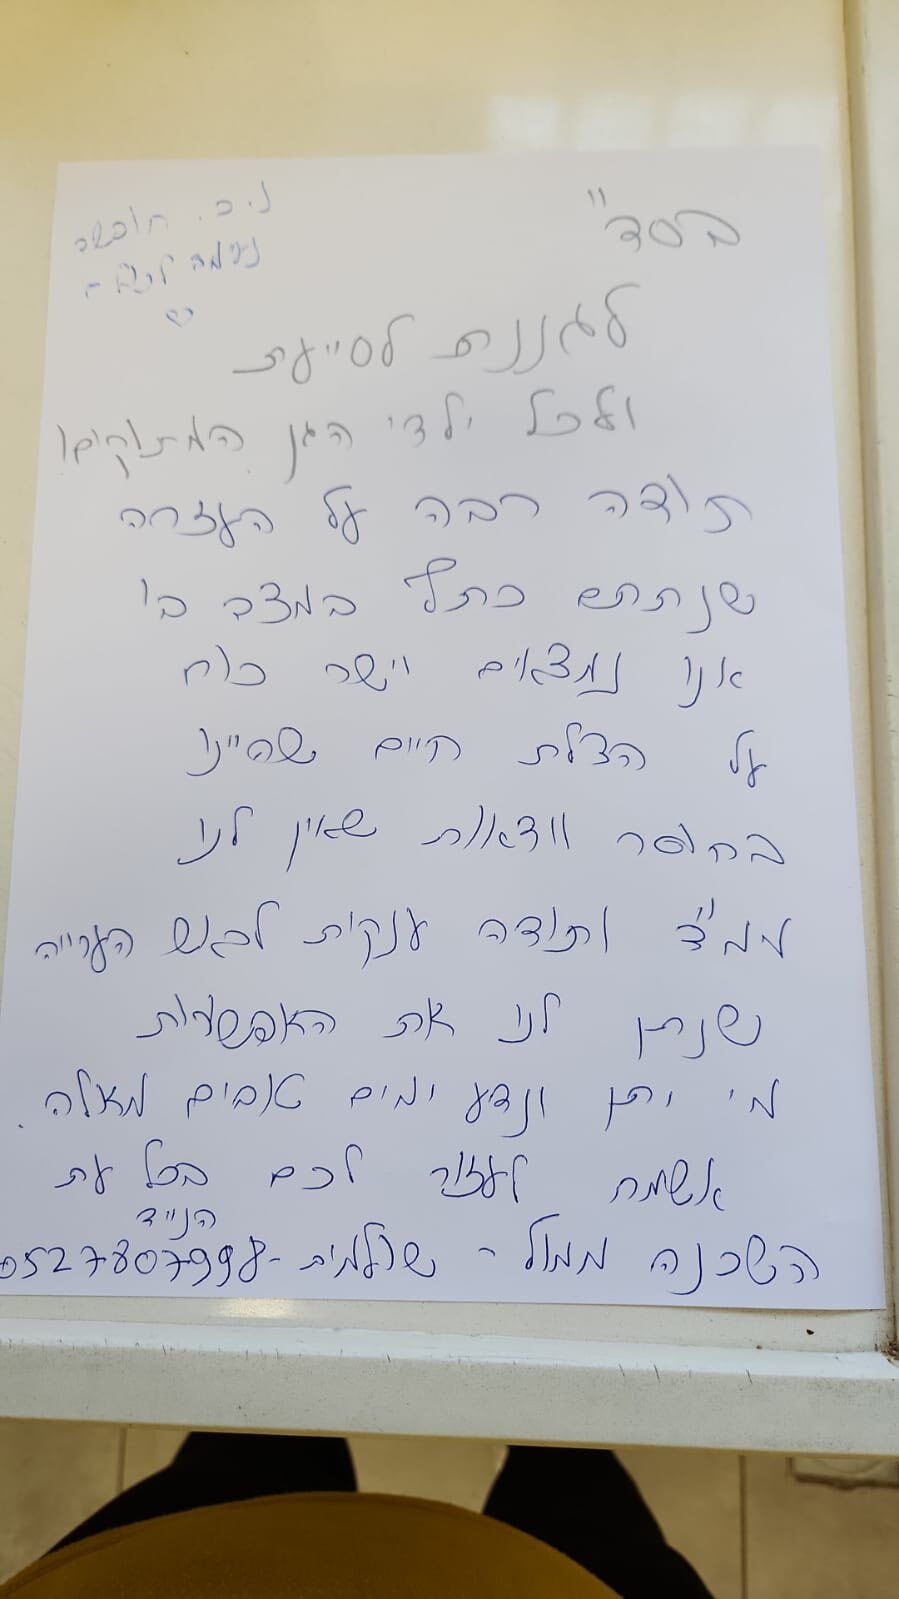 בסד"
נ.ב. חופשה
נעימה לכולם
לגננת לסייעת
ולכל ילדי הגן המתוקים!
תודה רבה על העזרה
שנתתם כתף במצב בו
אנו נמצאים וישר כוח
על הצלת חיים שהיינו
בחוסר וודאות שאין לנו
ממ"ד ותודה ענקית לראש העירייה
שנתן לנו את האפשרות
מי יתן ונדע ימים טובים מאלה.
אשמח לעזור לכם בכל עת
הנייד
השכנה ממול - שולמית - 0527807998